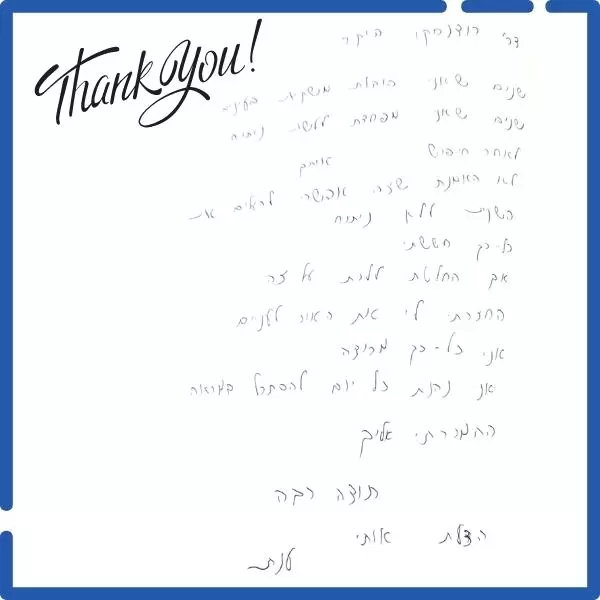 Thank You!
דר' רודנסקי היקר
שנים שאני הולכת משקפת בעינים
שנים שאני מפחדת לעשות ניתוח
לאחר חיפוש אותך
לא האמנתי שזה אפשרי להעלים את
השקיות ללא ניתוח
כל-כך חששתי
אך החלטתי ללכת על זה
החזרת לי את האור לעניים
אני כל-כך מרוצה
אני נהנת כל יום להסתכל במראה
התמכרתי אליך
תודה רבה
הצלת אותי
ענת